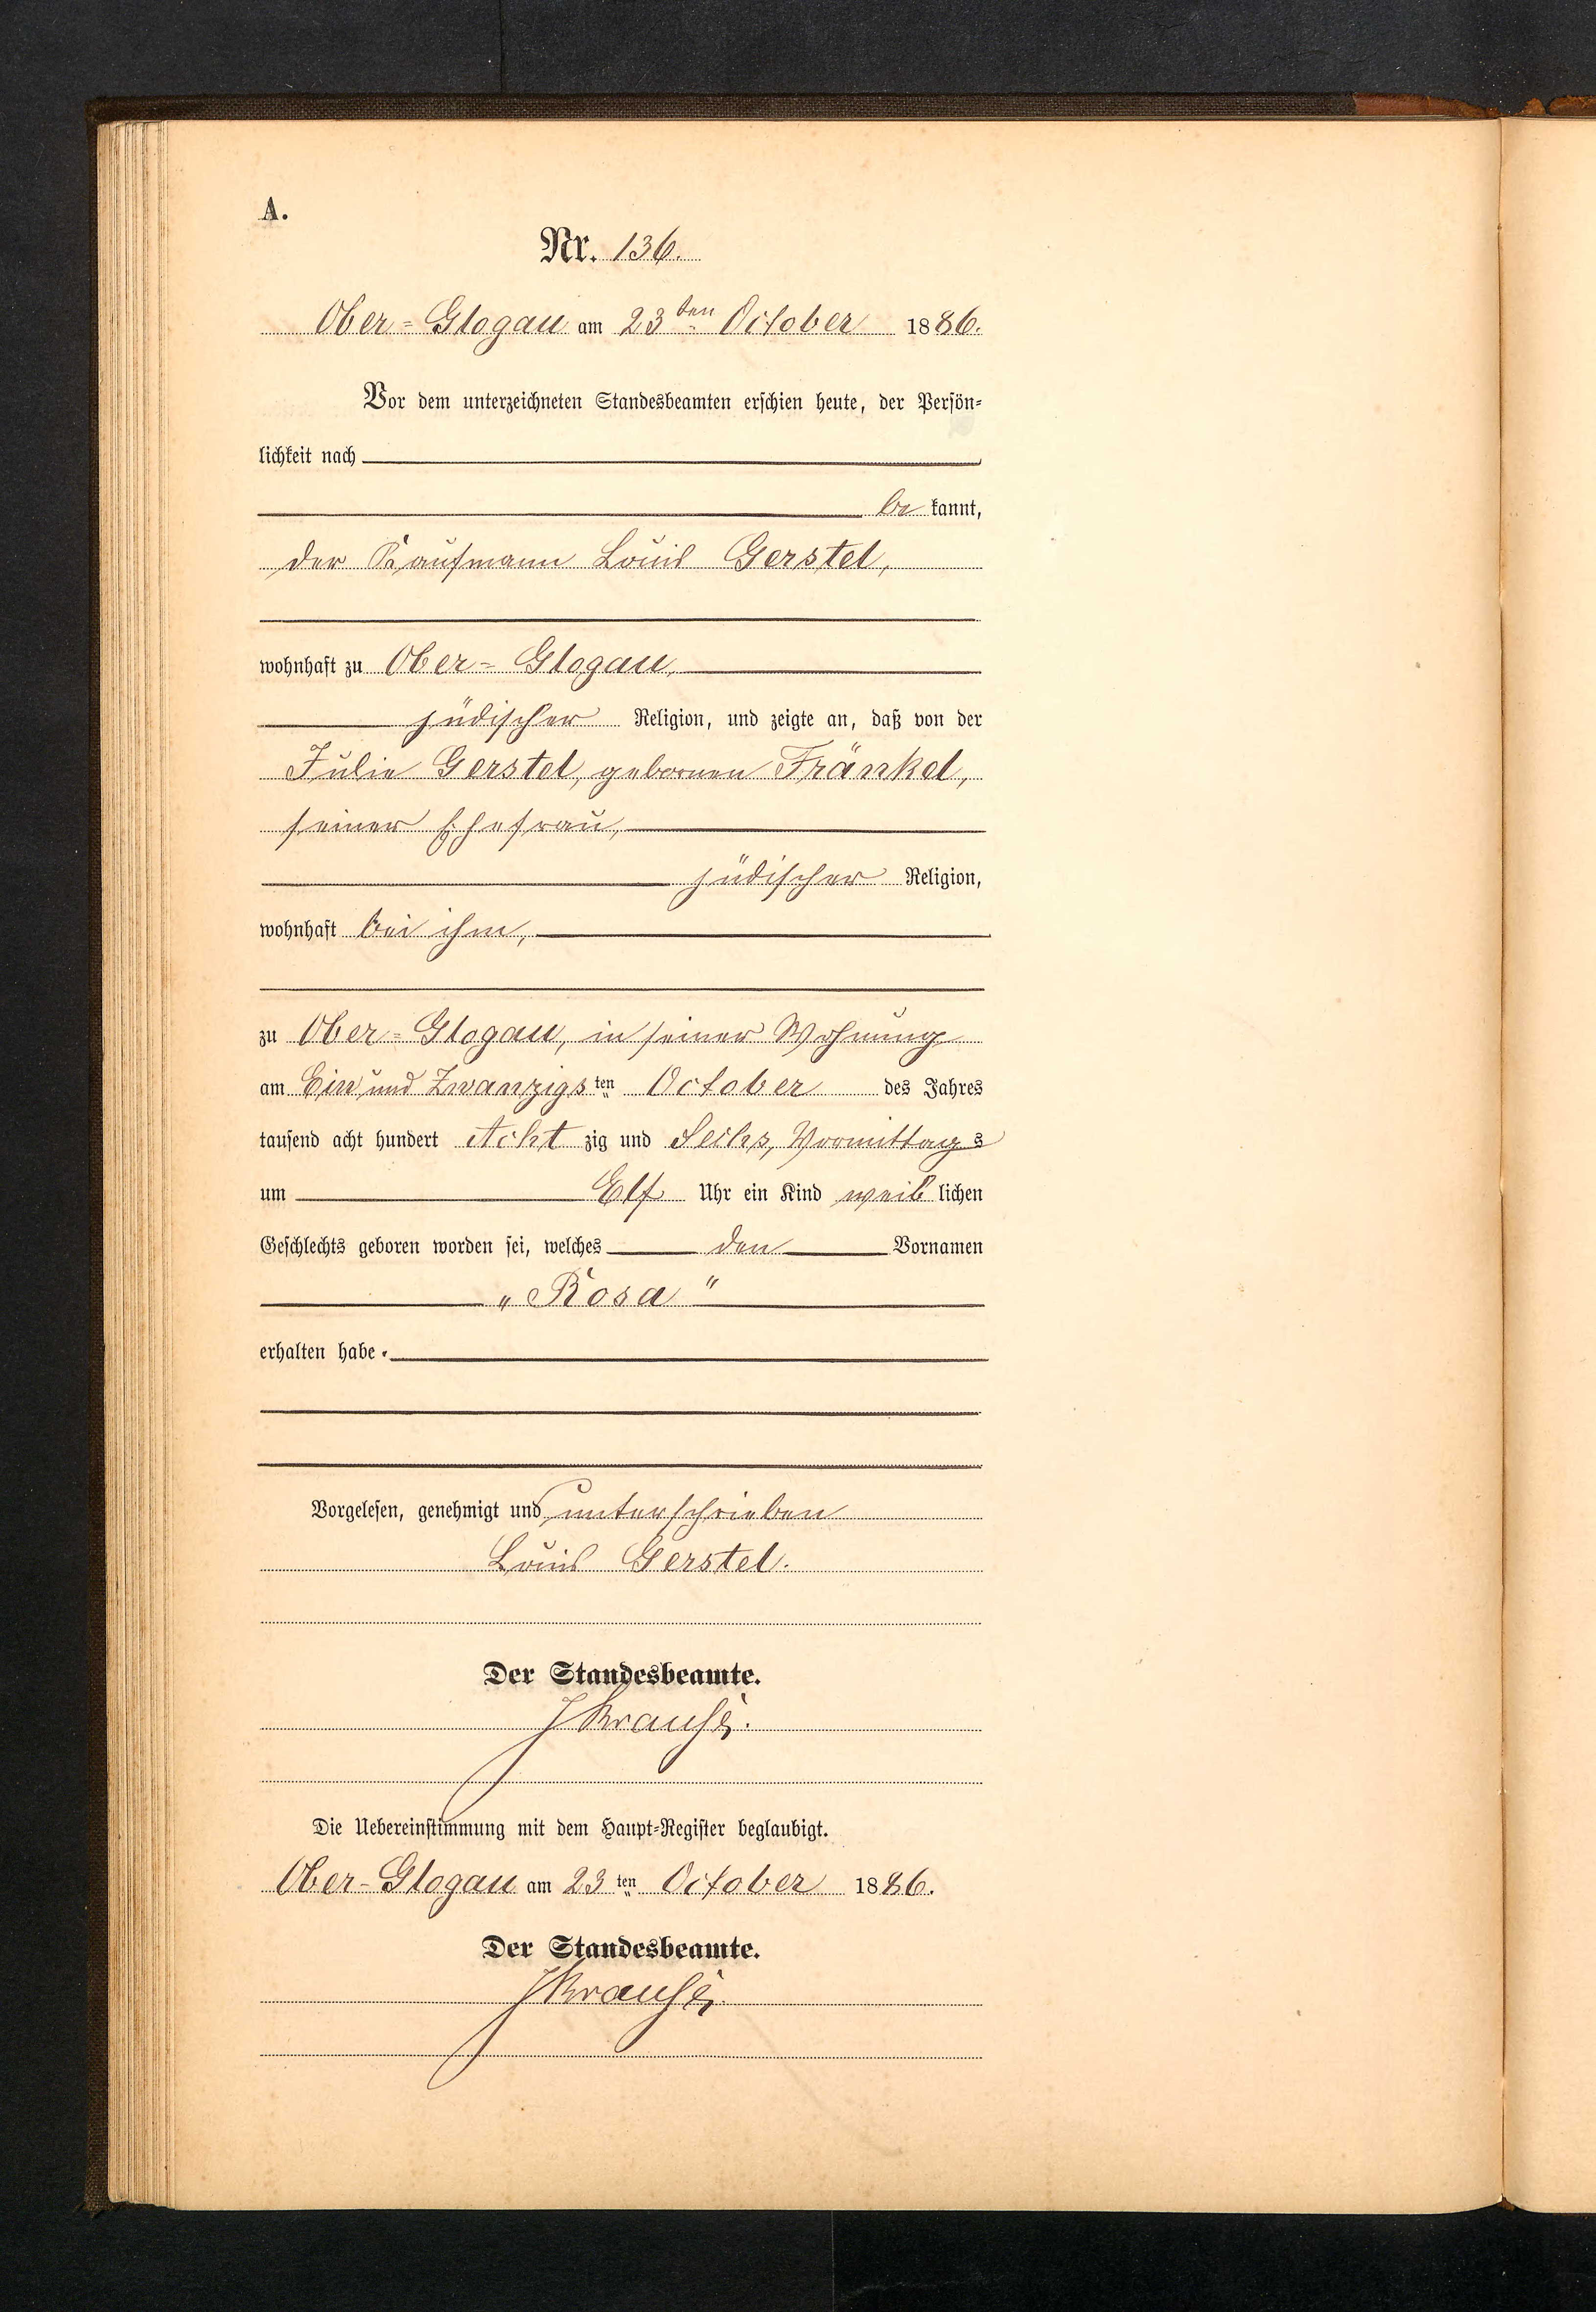 A.
Nr. 136.
Ober-Glogau am 23ten October 1886.
Vor dem unterzeichneten Standesbeamten erschien heute, der Persön-
lichkeit nach
be kannt,
der Kaufmann Louis Gerstel,
wohnhaft zu Ober-Glogau,
jüdischer Religion, und zeigte an, daß von der
Julie Gerstel, gebornen Fränkel,
seiner Ehefrau,
jüdischer Religion,
wohnhaft bei ihm,
zu Ober-Glogau, in seiner Wohnung
am Ein und Zwanzigsten October des Jahres
tausend acht hundert Acht zig und Sechs, Vormittags
um Elf Uhr ein Kind weib lichen
Geschlechts geboren worden sei, welches den Vornamen
„Rosa"
erhalten habe.
Vorgelesen, genehmigt und unterschrieben
Louis Gerstel.
Der Standesbeamte.
JKrause.
Die Uebereinstimmung mit dem Haupt-Register beglaubigt.
Ober-Glogau am 23ten October 1886.
Der Standesbeamte.
JKrause.